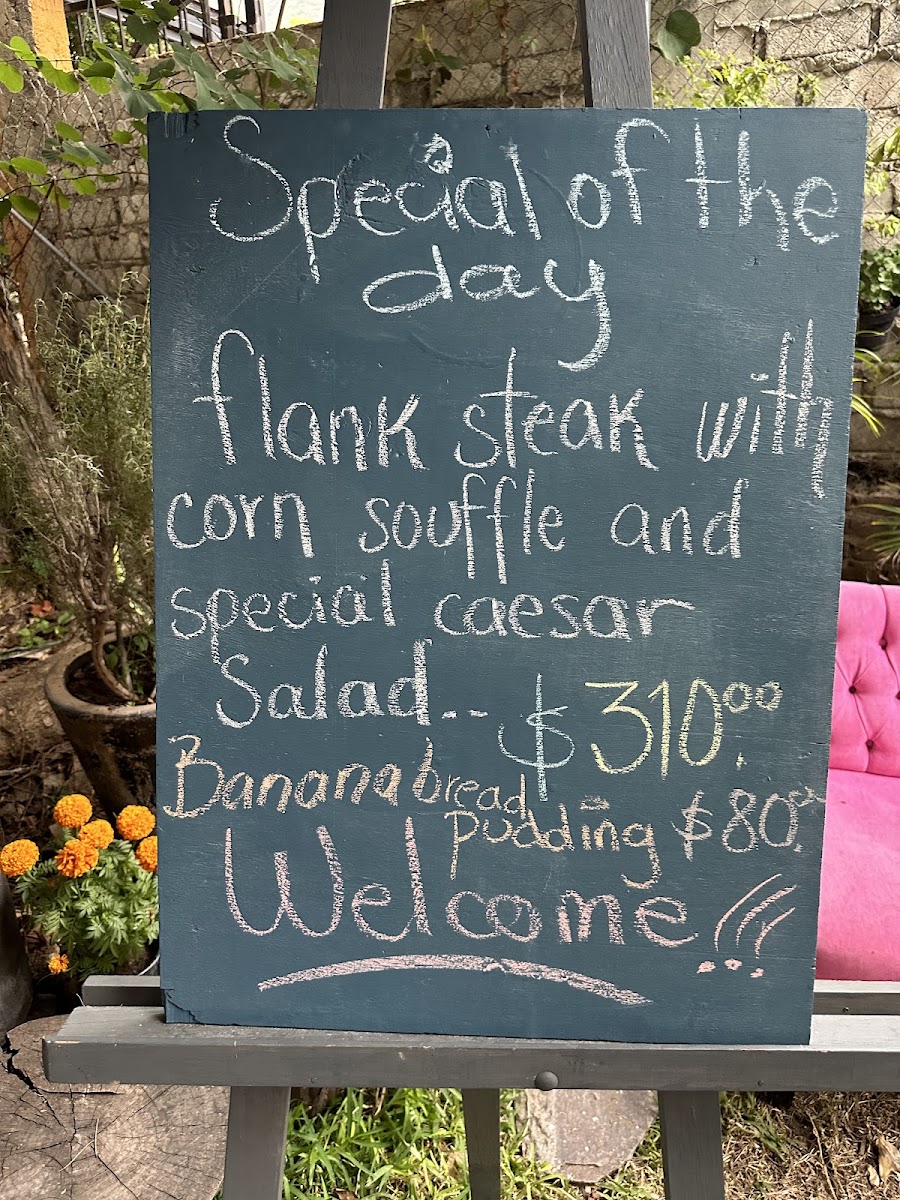 Special of the
day
flank steak with
corn souffle and
special caesar
Salad.. $ 310.00
Banana bread
pudding $80.
Welcome !!!